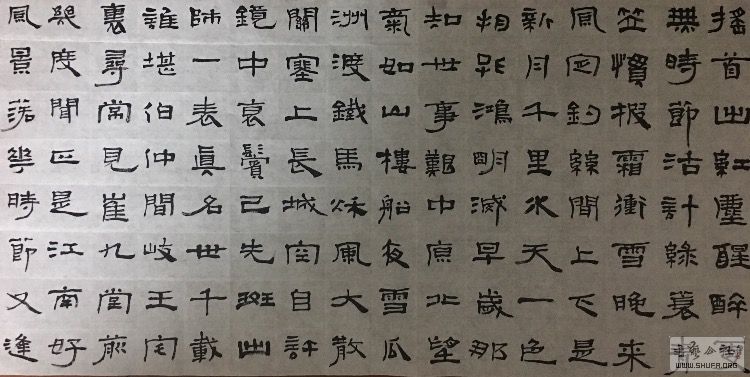 搖首出紅塵醒醉更
無時節活計綠蓑青
笠慣披霜衝雪晚來
風定釣絲間上下是
新月千里水天一色
相孤鴻明滅早歲那
知世事艱中原北望
氣如山樓船夜雪瓜
洲渡鐵馬秋風大散
關塞上長城空自許
鏡中衰鬢已先斑出
師一表真名世千載
誰堪伯仲間岐王宅
裏尋常見崔九堂前
幾度聞正是江南好
風景落華時節又逢
WWW.SHUFA.ORG